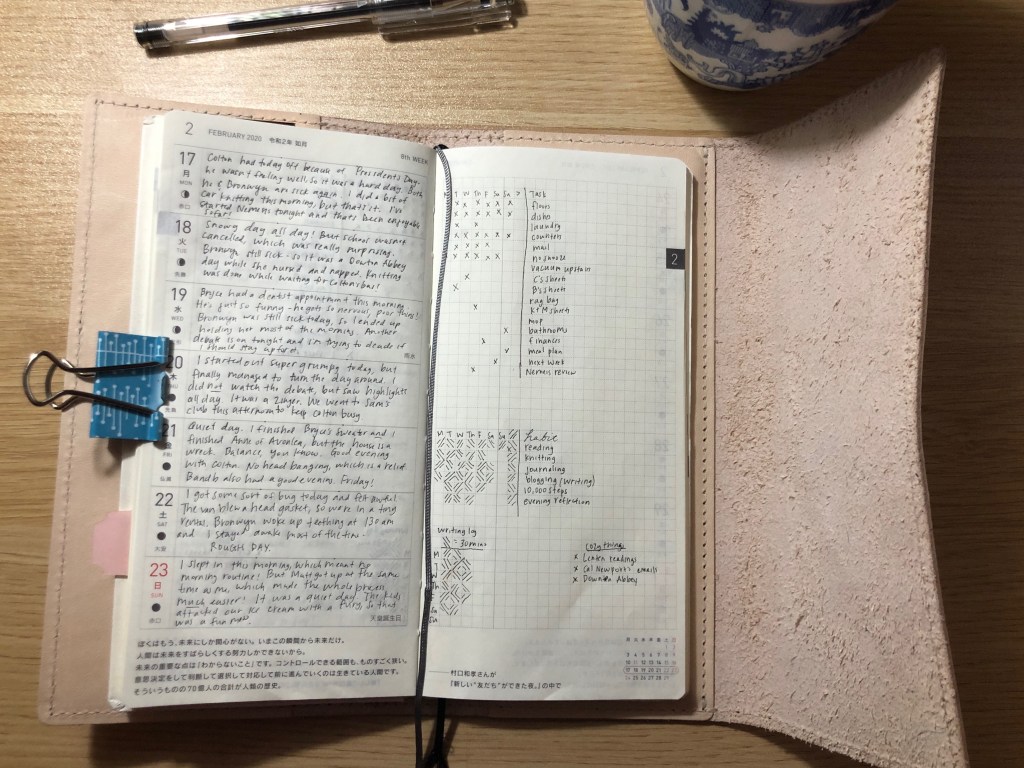 2 FEBRUARY 2020 令和2年 如月
8th WEEK
17
月
MON
赤口
Colton had today off because of Presidents Day.
he wasn't feeling well, so it was a hard day. Both
he & Bronwyn are sick again. I did a bit of
car knitting this morning, but that's it. I've
started Nemesis tonight and thats been enjoyable
so far!
18
火
TUE
先勝
Snowy day all day! But school wasn't
cancelled, which was really surprising.
Bronwyn still sick - so it was a Downton Abbey
day while she nursed and napped. Knitting
was done while waiting for Colton's bus!
19
水
WED
雨水
Bryce had a dentist appointment this morning.
He's just so funny - he gets so nervous, poor thing!
Bronwyn was still sick today, so I ended up
holding her most of the morning. Another
debate is on tonight and i'm trying to decide if
I should stay up for it.
20
木
I started out super grumpy today, but
finally managed to turn the day around. I
did not watch the debate, but saw highlights
all day. It was a zinger. We went to Sam's
club this afternoon to keep Colton busy
21
金
FRI
仏滅
Quiet day. I finished Bryce's sweater and I
finished Anne of Avonlea, but the house is a
wreck. Balance, you know. Good evening
with Colton. No head banging, which is a relief.
B and b also had a good evening. Friday!
22
土
SAT
大安
I got some sort of bug today and felt awful!
The van blew a head gasket, so were in a tiny
rental, Bronwyn woke up teething at 130 am
and I stayed awake most of the time-
ROUGH DAY.
23
日
SUN
赤口
I slept in this morning, which meant no
morning routine! But Matt got up at the same
time as me, which made the whole process
much easier! It was a quiet day. The kids
attacked our ice cream with a fury, so that
was a fun new.
天皇誕生日
ぼくはもう、未来にしか関心がない。いまこの瞬間から未来だけ。
人間は未来をすばらしくする努力しかできないから。
未来の重要な点は「わからないこと」です。コントロールできる範囲も、ものすごく狭い。
意思決定をして判断して選択して対応して前に進んでいくのは生きている人間です。
そういうものの70億人の合計が人類の歴史。
T W Th F Sa Su > Task
x x x x x x floors
x x x x x x dishes
x laundry
x x x x x x counters
x x x x mail
x x x x x no snooze
vacuum upstairs
x C's sheets
x B's sheets
rag bag
x K+M sheets
mop
x bathrooms
x finances
x meal plan
x next week
x Nemesis review
2
M T W Th F Sa Su habit
reading
knitting
journaling
blogging (writing)
10,000 steps
evening reflection
writing log
= 30 mins
M
T
W
Th
Sa
Su
cozy things
x Lenten readings
x Cal Newport's emails
x Downton Abbey
村口和孝さんが
『新しい“友だち”ができた夜。』の中で
月 火 水 木 金 土 日
1 2
3 4 5 6 7 8 9
10 11 12 13 14 15 16
17 18 19 20 21 22 23
24 25 26 27 28 29